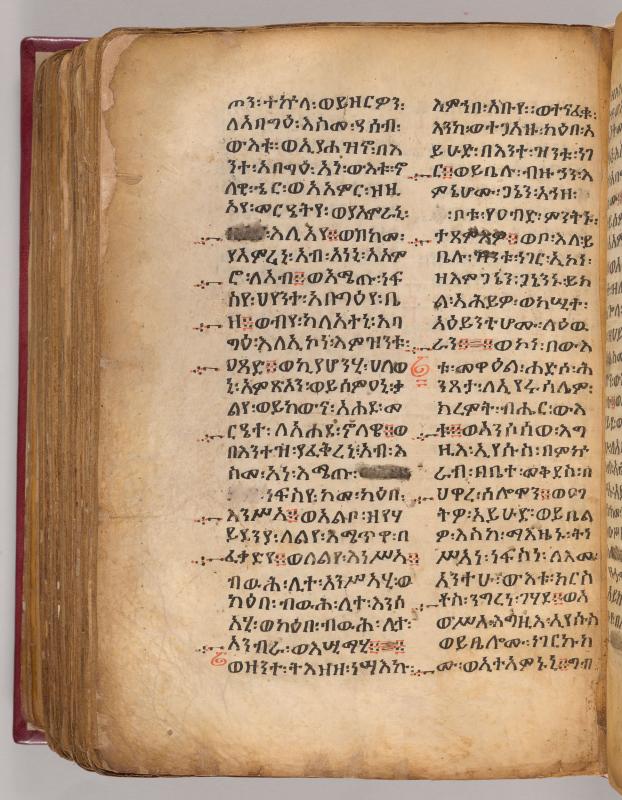 ጦን፡ተኵላ፡ወይዘርዎን፡
ለአባግዕ፡እስመ፡ዓሳብ፡
ውእቱ፡ወኢያሐዝኖ፡በእ
ንተ፡አባግዕ፡አነ፡ውእቱ፡ኖ
ላዊ፡ኄር፡ወአአምር፡ዘዚ
አየ፡መርዔትየ፡ወያአምራኒ፡
እሊአየ።ወበከመ፡
ያአምረኒ፡አብ፡አነኒ፡አአም
ሮ፡ለአብ።ወእሜጡ፡ነፍ
ስየ፡ህየንተ፡አባግዕየ፡ቤ
ዛ።ወብየ፡ካልኣትኒ፡አባ
ግዕ፡እለኢኮነ፡እምዝንቱ፡
ዐጸድ።ወኪያሆንሂ፡ሀለወ
ኒ፡አምጽኦን፡ወይሰምዐኒ፡ቃ
ልየ፡ወይከውና፡አሐደ፡መ
ርዔተ፡ለአሐዱ፡ኖላዊ።ወ
በእንተዝ፡ያፈቅረኒ፡አብ፡እ
ስመ፡አነ፡እሜጡ፡
ነፍስየ፡ከመ፡ካዕበ፡
እንሥኣ።ወአልቦ፡ዘየሃ
ይደኒያ፡ለልየ፡እሜጥዋ፡በ
ፈቃድየ።ወለልየ፡እነሥኣ።
ብዉሕ፡ሊተ፡እንሥኣሂ፡ወ
ካዕበ፡ብዉሕ፡ሊተ፡እንስ
ኣሂ፡ወካዕበ፡ብዉሕ፡ሊተ፡
አንብራ፡ወእሢማሂ።
ወዘንተ፡ትእዛዘ፡ነሣእኩ፡
እምኀበ፡አቡየ።ወተናፈቁ፡
እንከ፡ወተጋእዙ፡ካዕበ፡አ
ይሁድ፡በእንተ፡ዝንቱ፡ነገ
ር።ወይቤሉ፡ብዙኃን፡እ
ምኔሆሙ፡ጋኔን፡አኀዞ፡
ቦቱ፡የዐብድ፡ምንትኑ፡
ታጸምእዎ።ወቦ፡እለ፡ይ
ቤሉ፡ዝንቱ፡ነገር፡ኢኮነ፡
ዘእምጋኔን፡ጋኔንኑ፡ይክ
ል፡አሕይዎ፡ወከሢተ፡
አዕይንቲሆሙ፡ለዕዉ
ራን።ወኮነ፡በውእ
ቱ፡መዋዕል፡ሐድሶ፡ሕ
ንጻታ፡ለኢየሩሳሌም፡
ክረምት፡ብሔር፡ውእ
ቱ።ወአንሶሰወ፡እግ
ዚእ፡ኢየሱስ፡በምኵ
ራብ፡በቤተ፡መቅደስ፡በ
ሀዋረ፡ሰሎሞን።ወዐገ
ትዎ፡አይሁድ፡ወይቤል
ዎ፡እስከ፡ማእዜኑ፡ትነ
ሥእ፡ነፍስነ፡ለእመ፡
አንተሁ፡ውእቱ፡ክርስ
ቶስ፡ንግረነ፡ገሃደ።ወአ
ውሥአ፡እግዚእ፡ኢየሱስ
ወይቤሎሙ፡ነገርኩክ
ሙ፡ወኢተአምኑኒ።ግብ